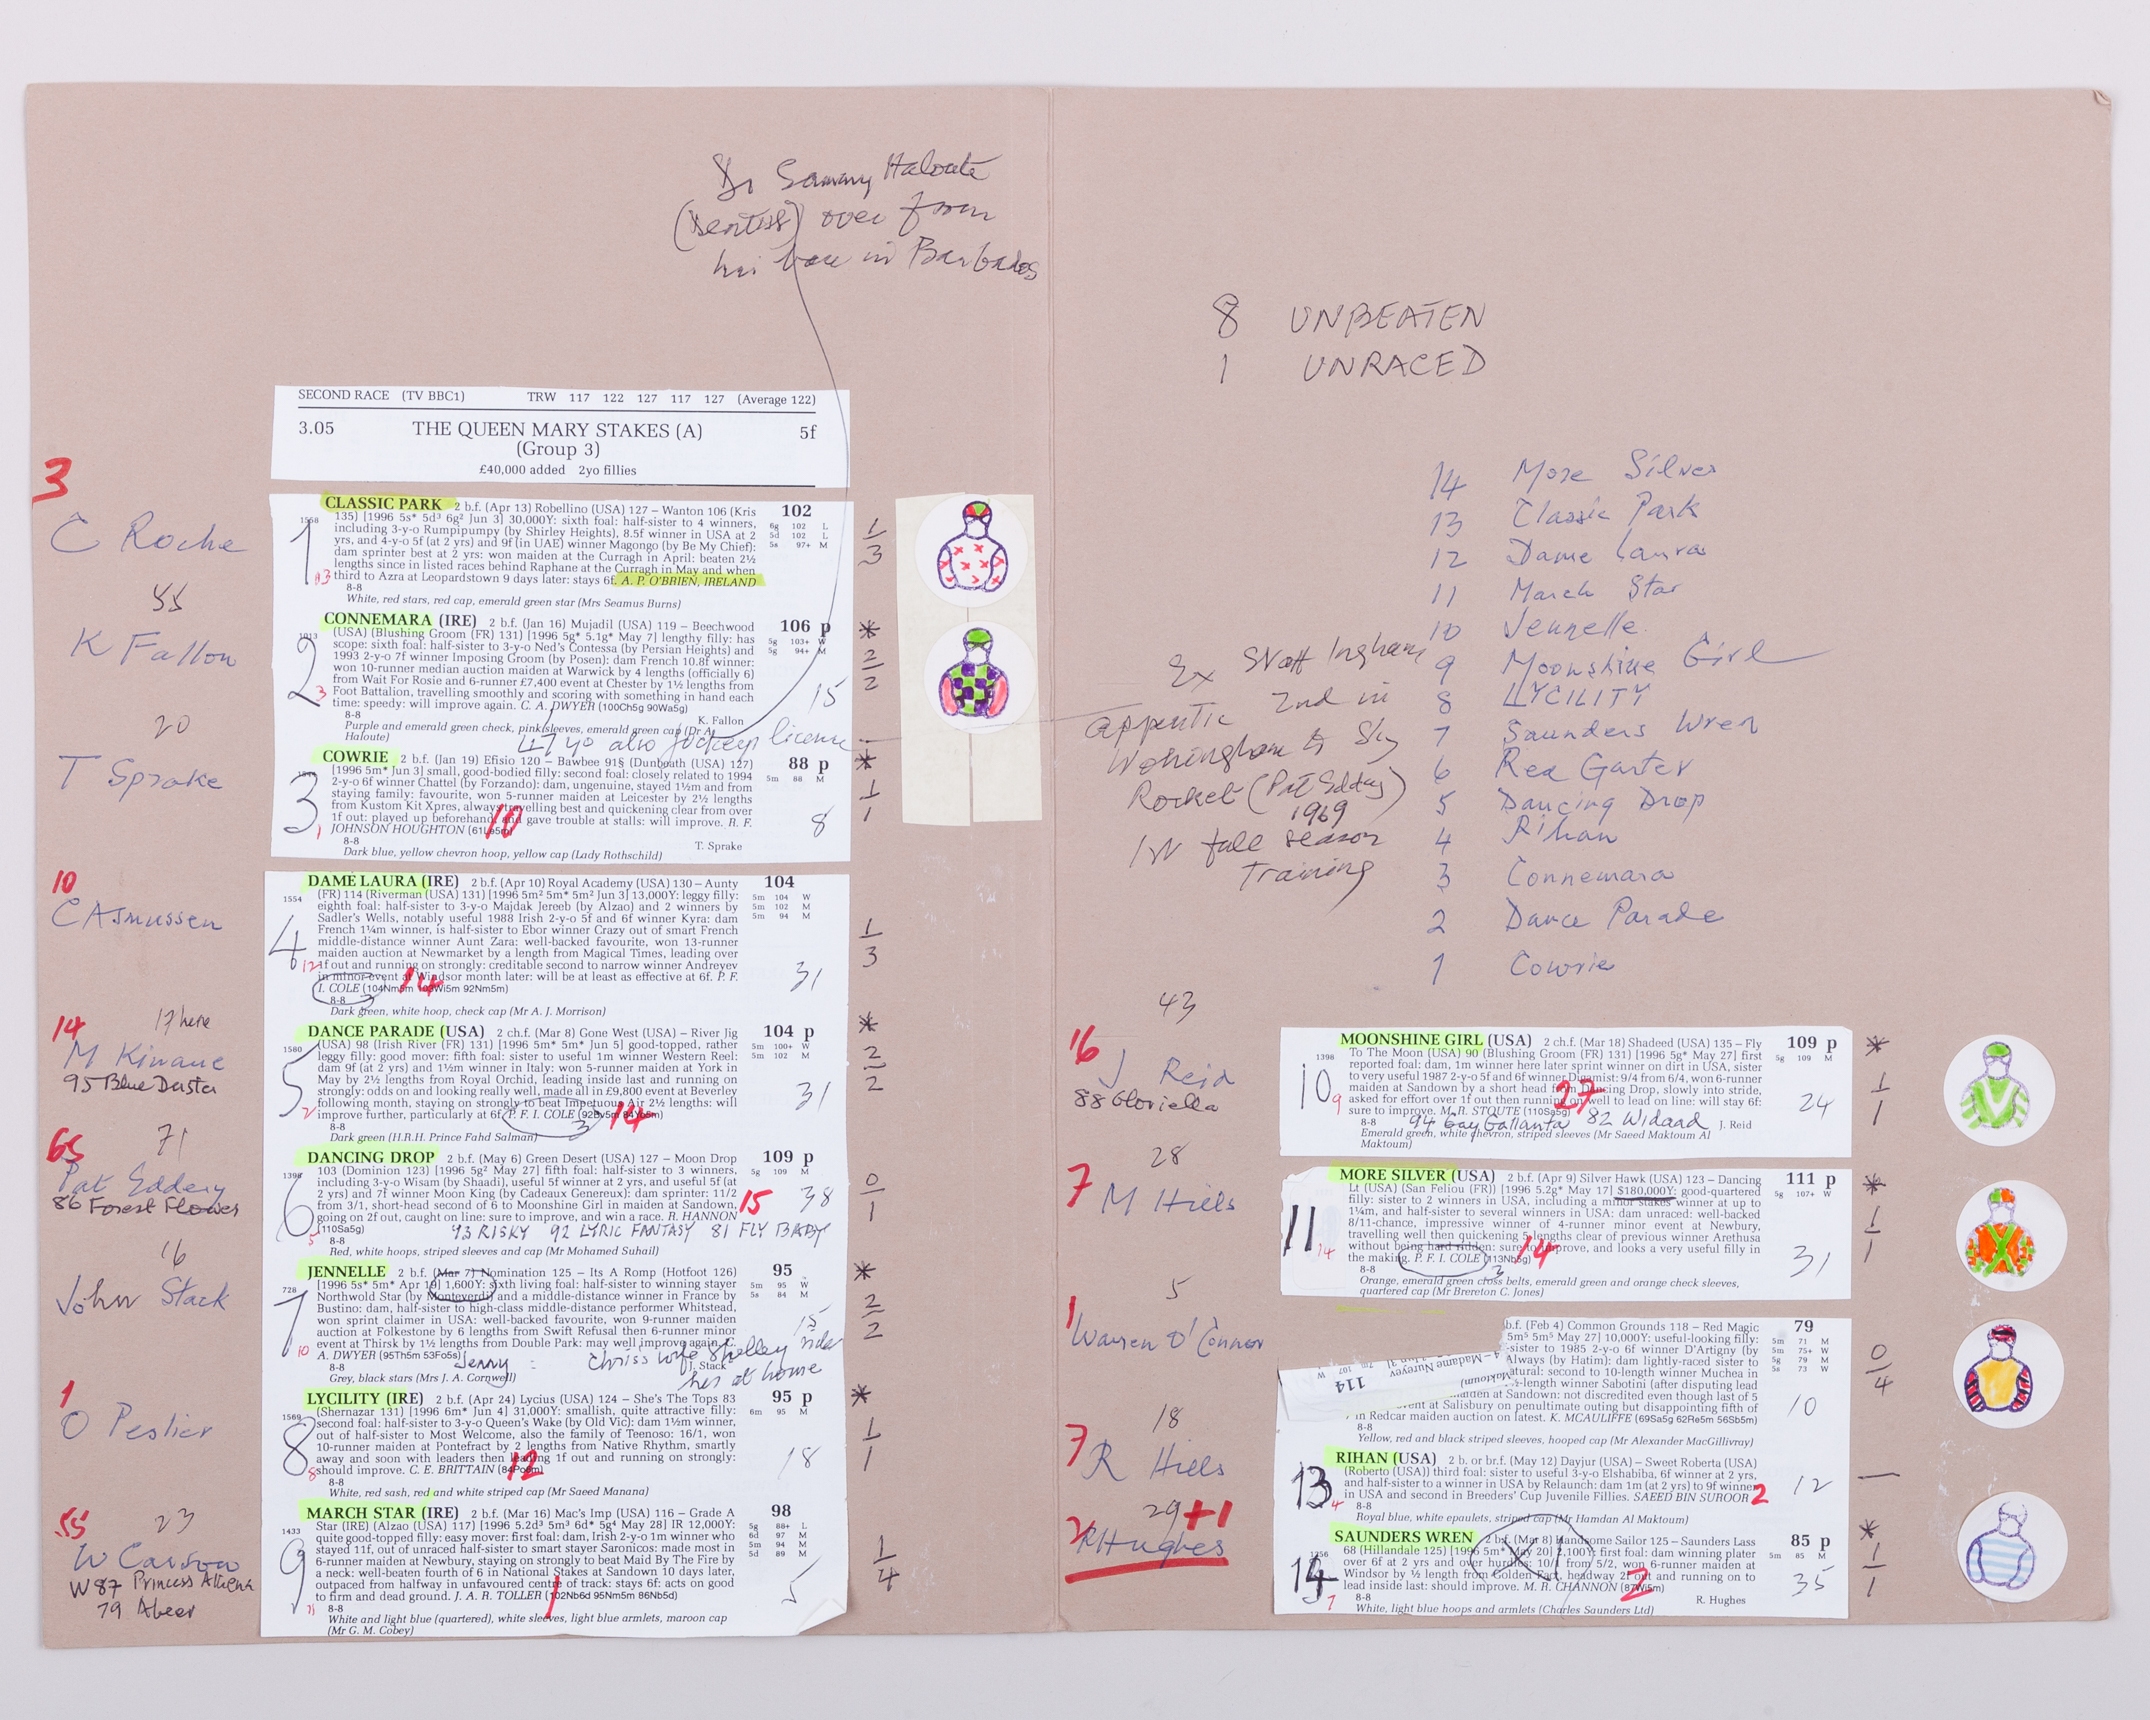 Dr Sammy Haloute
(dentist) over from
his base in Barbados
8 UNBEATEN
1 UNRACED
SECOND RACE (TV BBC1) TRW 117 122 127 117 127 (Average 122)
3.05 THE QUEEN MARY STAKES (A) 5f
(Group 3)
£40,000 added 2yo fillies
3
C Roche
1
13
1558
CLASSIC PARK 2 b.f. (Apr 13) Robellino (USA) 127 – Wanton 106 (Kris 102
135) [1996 5s* 5d³ 6g² Jun 3] 30,000Y: sixth foal: half-sister to 4 winners, 6g 102 L
including 3-y-o Rumpipumpy (by Shirley Heights), 8.5f winner in USA at 2 5d 102 L
yrs, and 4-y-o 5f (at 2 yrs) and 9f (in UAE) winner Magongo (by Be My Chief): 5s 97+ M
dam sprinter best at 2 yrs: won maiden at the Curragh in April: beaten 2½
lengths since in listed races behind Raphane at the Curragh in May and when
third to Azra at Leopardstown 9 days later: stays 6f. A. P. O'BRIEN, IRELAND
8-8
White, red stars, red cap, emerald green star (Mrs Seamus Burns)
1
3
55
K Fallon
2
3
1013
CONNEMARA (IRE) 2 b.f. (Jan 16) Mujadil (USA) 119 – Beechwood 106 p
(USA) (Blushing Groom (FR) 131) [1996 5g* 5.1g* May 7] lengthy filly: has 5g 103+ W
scope: sixth foal: half-sister to 3-y-o Ned's Contessa (by Persian Heights) and 5g 94+ M
1993 2-y-o 7f winner Imposing Groom (by Posen): dam French 10.8f winner:
won 10-runner median auction maiden at Warwick by 4 lengths (officially 6)
from Wait For Rosie and 6-runner £7,400 event at Chester by 1½ lengths from
Foot Battalion, travelling smoothly and scoring with something in hand each
time: speedy: will improve again. C. A. DWYER (100Ch5g 90Wa5g)
8-8 K. Fallon
Purple and emerald green check, pink sleeves, emerald green cap (Dr A.
Haloute)
47 yo also jockeys license
*
2
2
15
20
T Sprake
3
1
COWRIE 2 b.f. (Jan 19) Efisio 120 – Bawbee 91§ (Dunbeath (USA) 127) 88 p
[1996 5m* Jun 3] small, good-bodied filly: second foal: closely related to 1994 5m 88 M
2-y-o 6f winner Chattel (by Forzando): dam, ungenuine, stayed 1½m and from
staying family: favourite, won 5-runner maiden at Leicester by 2½ lengths
from Kustom Kit Xpres, always travelling best and quickening clear from over
1f out: played up beforehand, and gave trouble at stalls: will improve. R. F.
JOHNSON HOUGHTON (61Le5m)
8-8 T. Sprake
Dark blue, yellow chevron hoop, yellow cap (Lady Rothschild)
10
8
*
1
1
10
C Asmussen
4
12
1554
DAME LAURA (IRE) 2 b.f. (Apr 10) Royal Academy (USA) 130 – Aunty 104
(FR) 114 (Riverman (USA) 131) [1996 5m² 5m* 5m² Jun 3] 13,000Y: leggy filly: 5m 104 W
eighth foal: half-sister to 3-y-o Majdak Jereeb (by Alzao) and 2 winners by 5m 102 M
Sadler's Wells, notably useful 1988 Irish 2-y-o 5f and 6f winner Kyra: dam 5m 94 M
French 1¼m winner, is half-sister to Ebor winner Crazy out of smart French
middle-distance winner Aunt Zara: well-backed favourite, won 13-runner
maiden auction at Newmarket by a length from Magical Times, leading over
1f out and running on strongly: creditable second to narrow winner Andreyev
in minor event at Windsor month later: will be at least as effective at 6f. P. F.
I. COLE (104Nm5m 103Wi5m 92Nm5m)
8-8
Dark green, white hoop, check cap (Mr A. J. Morrison)
14
31
1
3
14 17 here
M Kinane
95 Blue Duster
5
2
1580
DANCE PARADE (USA) 2 ch.f. (Mar 8) Gone West (USA) – River Jig 104 p
(USA) 98 (Irish River (FR) 131) [1996 5m* 5m* Jun 5] good-topped, rather 5m 100+ W
leggy filly: good mover: fifth foal: sister to useful 1m winner Western Reel: 5m 102 M
dam 9f (at 2 yrs) and 1½m winner in Italy: won 5-runner maiden at York in
May by 2½ lengths from Royal Orchid, leading inside last and running on
strongly: odds on and looking really well, made all in £9,800 event at Beverley
following month, staying on strongly to beat Impetuous Air 2½ lengths: will
improve further, particularly at 6f. P. F. I. COLE (92Bv5m 84Yo5m)
8-8
Dark green (H.R.H. Prince Fahd Salman)
3
14
31
*
2
2
65 71
Pat Eddery
86 Forest Flower
6
5
1398
DANCING DROP 2 b.f. (May 6) Green Desert (USA) 127 – Moon Drop 109 p
103 (Dominion 123) [1996 5g² May 27] fifth foal: half-sister to 3 winners, 5g 109 M
including 3-y-o Wisam (by Shaadi), useful 5f winner at 2 yrs, and useful 5f (at
2 yrs) and 7f winner Moon King (by Cadeaux Genereux): dam sprinter: 11/2
from 3/1, short-head second of 6 to Moonshine Girl in maiden at Sandown,
going on 2f out, caught on line: sure to improve, and win a race. R. HANNON
(110Sa5g)
93 RISKY 92 LYRIC FANTASY 81 FLY BABY
8-8
Red, white hoops, striped sleeves and cap (Mr Mohamed Suhail)
15
38
0
1
16
John Stack
7
10
728
JENNELLE 2 b.f. (Mar 7) Nomination 125 – Its A Romp (Hotfoot 126) 95
[1996 5s* 5m* Apr 19] 1,600Y: sixth living foal: half-sister to winning stayer 5m 95 W
Northwold Star (by Monteverdi) and a middle-distance winner in France by 5s 84 M
Bustino: dam, half-sister to high-class middle-distance performer Whitstead,
won sprint claimer in USA: well-backed favourite, won 9-runner maiden
auction at Folkestone by 6 lengths from Swift Refusal then 6-runner minor
event at Thirsk by 1½ lengths from Double Park: may well improve again. C.
A. DWYER (95Th5m 53Fo5s)
8-8 J. Stack
Grey, black stars (Mrs J. A. Cornwell)
Jenny : Chriss wife Shelley rides
her at home
15
*
2
2
1
O Peslier
8
8
1569
LYCILITY (IRE) 2 b.f. (Apr 24) Lycius (USA) 124 – She's The Tops 83 95 p
(Shernazar 131) [1996 6m* Jun 4] 31,000Y: smallish, quite attractive filly: 6m 95 M
second foal: half-sister to 3-y-o Queen's Wake (by Old Vic): dam 1½m winner,
out of half-sister to Most Welcome, also the family of Teenoso: 16/1, won
10-runner maiden at Pontefract by 2 lengths from Native Rhythm, smartly
away and soon with leaders then leading 1f out and running on strongly:
should improve. C. E. BRITTAIN (84Po6m)
8-8
White, red sash, red and white striped cap (Mr Saeed Manana)
12
18
*
1
1
55 23
W Carson
W 87 Princess Athena
79 Abeer
9
11
1433
MARCH STAR (IRE) 2 b.f. (Mar 16) Mac's Imp (USA) 116 – Grade A 98
Star (IRE) (Alzao (USA) 117) [1996 5.2d³ 5m³ 6d* 5g⁴ May 28] IR 12,000Y: 5g 88+ L
quite good-topped filly: easy mover: first foal: dam, Irish 2-y-o 1m winner who 6d 97 M
stayed 11f, out of unraced half-sister to smart stayer Saronicos: made most in 5m 94 M
6-runner maiden at Newbury, staying on strongly to beat Maid By The Fire by 5d 89 M
a neck: well-beaten fourth of 6 in National Stakes at Sandown 10 days later,
outpaced from halfway in unfavoured centre of track: stays 6f: acts on good
to firm and dead ground. J. A. R. TOLLER (102Nb6d 95Nm5m 86Nb5d)
8-8
White and light blue (quartered), white sleeves, light blue armlets, maroon cap
(Mr G. M. Cobey)
1
5
1
4
14 More Silver
13 Classic Park
12 Dame Laura
11 March Star
10 Jennelle
9 Moonshine Girl
8 LYCILITY
7 Saunders Wren
6 Red Garter
5 Dancing Drop
4 Rihan
3 Connemara
2 Dance Parade
1 Cowrie
Ex Stott Ingham
apprentic 2nd in
Wokingham to Sky
Rocket (Pat Eddery)
1969
1st full season
Training
43
16
J Reid
88 Gloriella
10
9
1398
MOONSHINE GIRL (USA) 2 ch.f. (Mar 18) Shadeed (USA) 135 – Fly 109 p
To The Moon (USA) 90 (Blushing Groom (FR) 131) [1996 5g* May 27] first 5g 109 M
reported foal: dam, 1m winner here later sprint winner on dirt in USA, sister
to very useful 1987 2-y-o 5f and 6f winner Digamist: 9/4 from 6/4, won 6-runner
maiden at Sandown by a short head from Dancing Drop, slowly into stride,
asked for effort over 1f out then running on well to lead on line: will stay 6f:
sure to improve. M. R. STOUTE (110Sa5g)
94 Gay Gallanta 82 Widaad
8-8 J. Reid
Emerald green, white chevron, striped sleeves (Mr Saeed Maktoum Al
Maktoum)
27
24
*
1
1
28
7
M Hills
11
14
MORE SILVER (USA) 2 b.f. (Apr 9) Silver Hawk (USA) 123 – Dancing 111 p
Lt (USA) (San Feliou (FR)) [1996 5.2g* May 17] $180,000Y: good-quartered 5g 107+ W
filly: sister to 2 winners in USA, including a minor stakes winner at up to
1¼m, and half-sister to several winners in USA: dam unraced: well-backed
8/11-chance, impressive winner of 4-runner minor event at Newbury,
travelling well then quickening 5 lengths clear of previous winner Arethusa
without being hard ridden: sure to improve, and looks a very useful filly in
the making. P. F. I. COLE (113Nb5g)
8-8
Orange, emerald green cross belts, emerald green and orange check sleeves,
quartered cap (Mr Brereton C. Jones)
3
14
31
*
1
1
5
1
Warren O'Connor
b.f. (Feb 4) Common Grounds 118 – Red Magic 79
5m⁵ 5m⁵ May 27] 10,000Y: useful-looking filly: 5m 71 M
-sister to 1985 2-y-o 6f winner D'Artigny (by 5m 75+ W
Always (by Hatim): dam lightly-raced sister to 5g 79 M
natural: second to 10-length winner Muchea in 5s 73 W
-length winner Sabotini (after disputing lead
maiden at Sandown: not discredited even though last of 5
event at Salisbury on penultimate outing but disappointing fifth of
7 in Redcar maiden auction on latest. K. MCAULIFFE (69Sa5g 62Re5m 56Sb5m)
8-8
Yellow, red and black striped sleeves, hooped cap (Mr Alexander MacGillivray)
A – Madame Nureyev
114
107 W
Maktoum)
10
0
4
18
7
R Hills
13
4
RIHAN (USA) 2 b. or br.f. (May 12) Dayjur (USA) – Sweet Roberta (USA)
(Roberto (USA)) third foal: sister to useful 3-y-o Elshabiba, 6f winner at 2 yrs,
and half-sister to a winner in USA by Relaunch: dam 1m (at 2 yrs) to 9f winner
in USA and second in Breeders' Cup Juvenile Fillies. SAEED BIN SUROOR
8-8
Royal blue, white epaulets, striped cap (Mr Hamdan Al Maktoum)
2
12
—
29 +1
2
R Hughes
14
7
1256
SAUNDERS WREN 2 b.f. (Mar 8) Handsome Sailor 125 – Saunders Lass 85 p
68 (Hillandale 125) [1996 5m* May 20] 2,100Y: first foal: dam winning plater 5m 85 M
over 6f at 2 yrs and over hurdles: 10/1 from 5/2, won 6-runner maiden at
Windsor by ½ length from Golden Fact, headway 2f out and running on to
lead inside last: should improve. M. R. CHANNON (87Wi5m)
8-8 R. Hughes
White, light blue hoops and armlets (Charles Saunders Ltd)
X 1
2
35
*
1
1